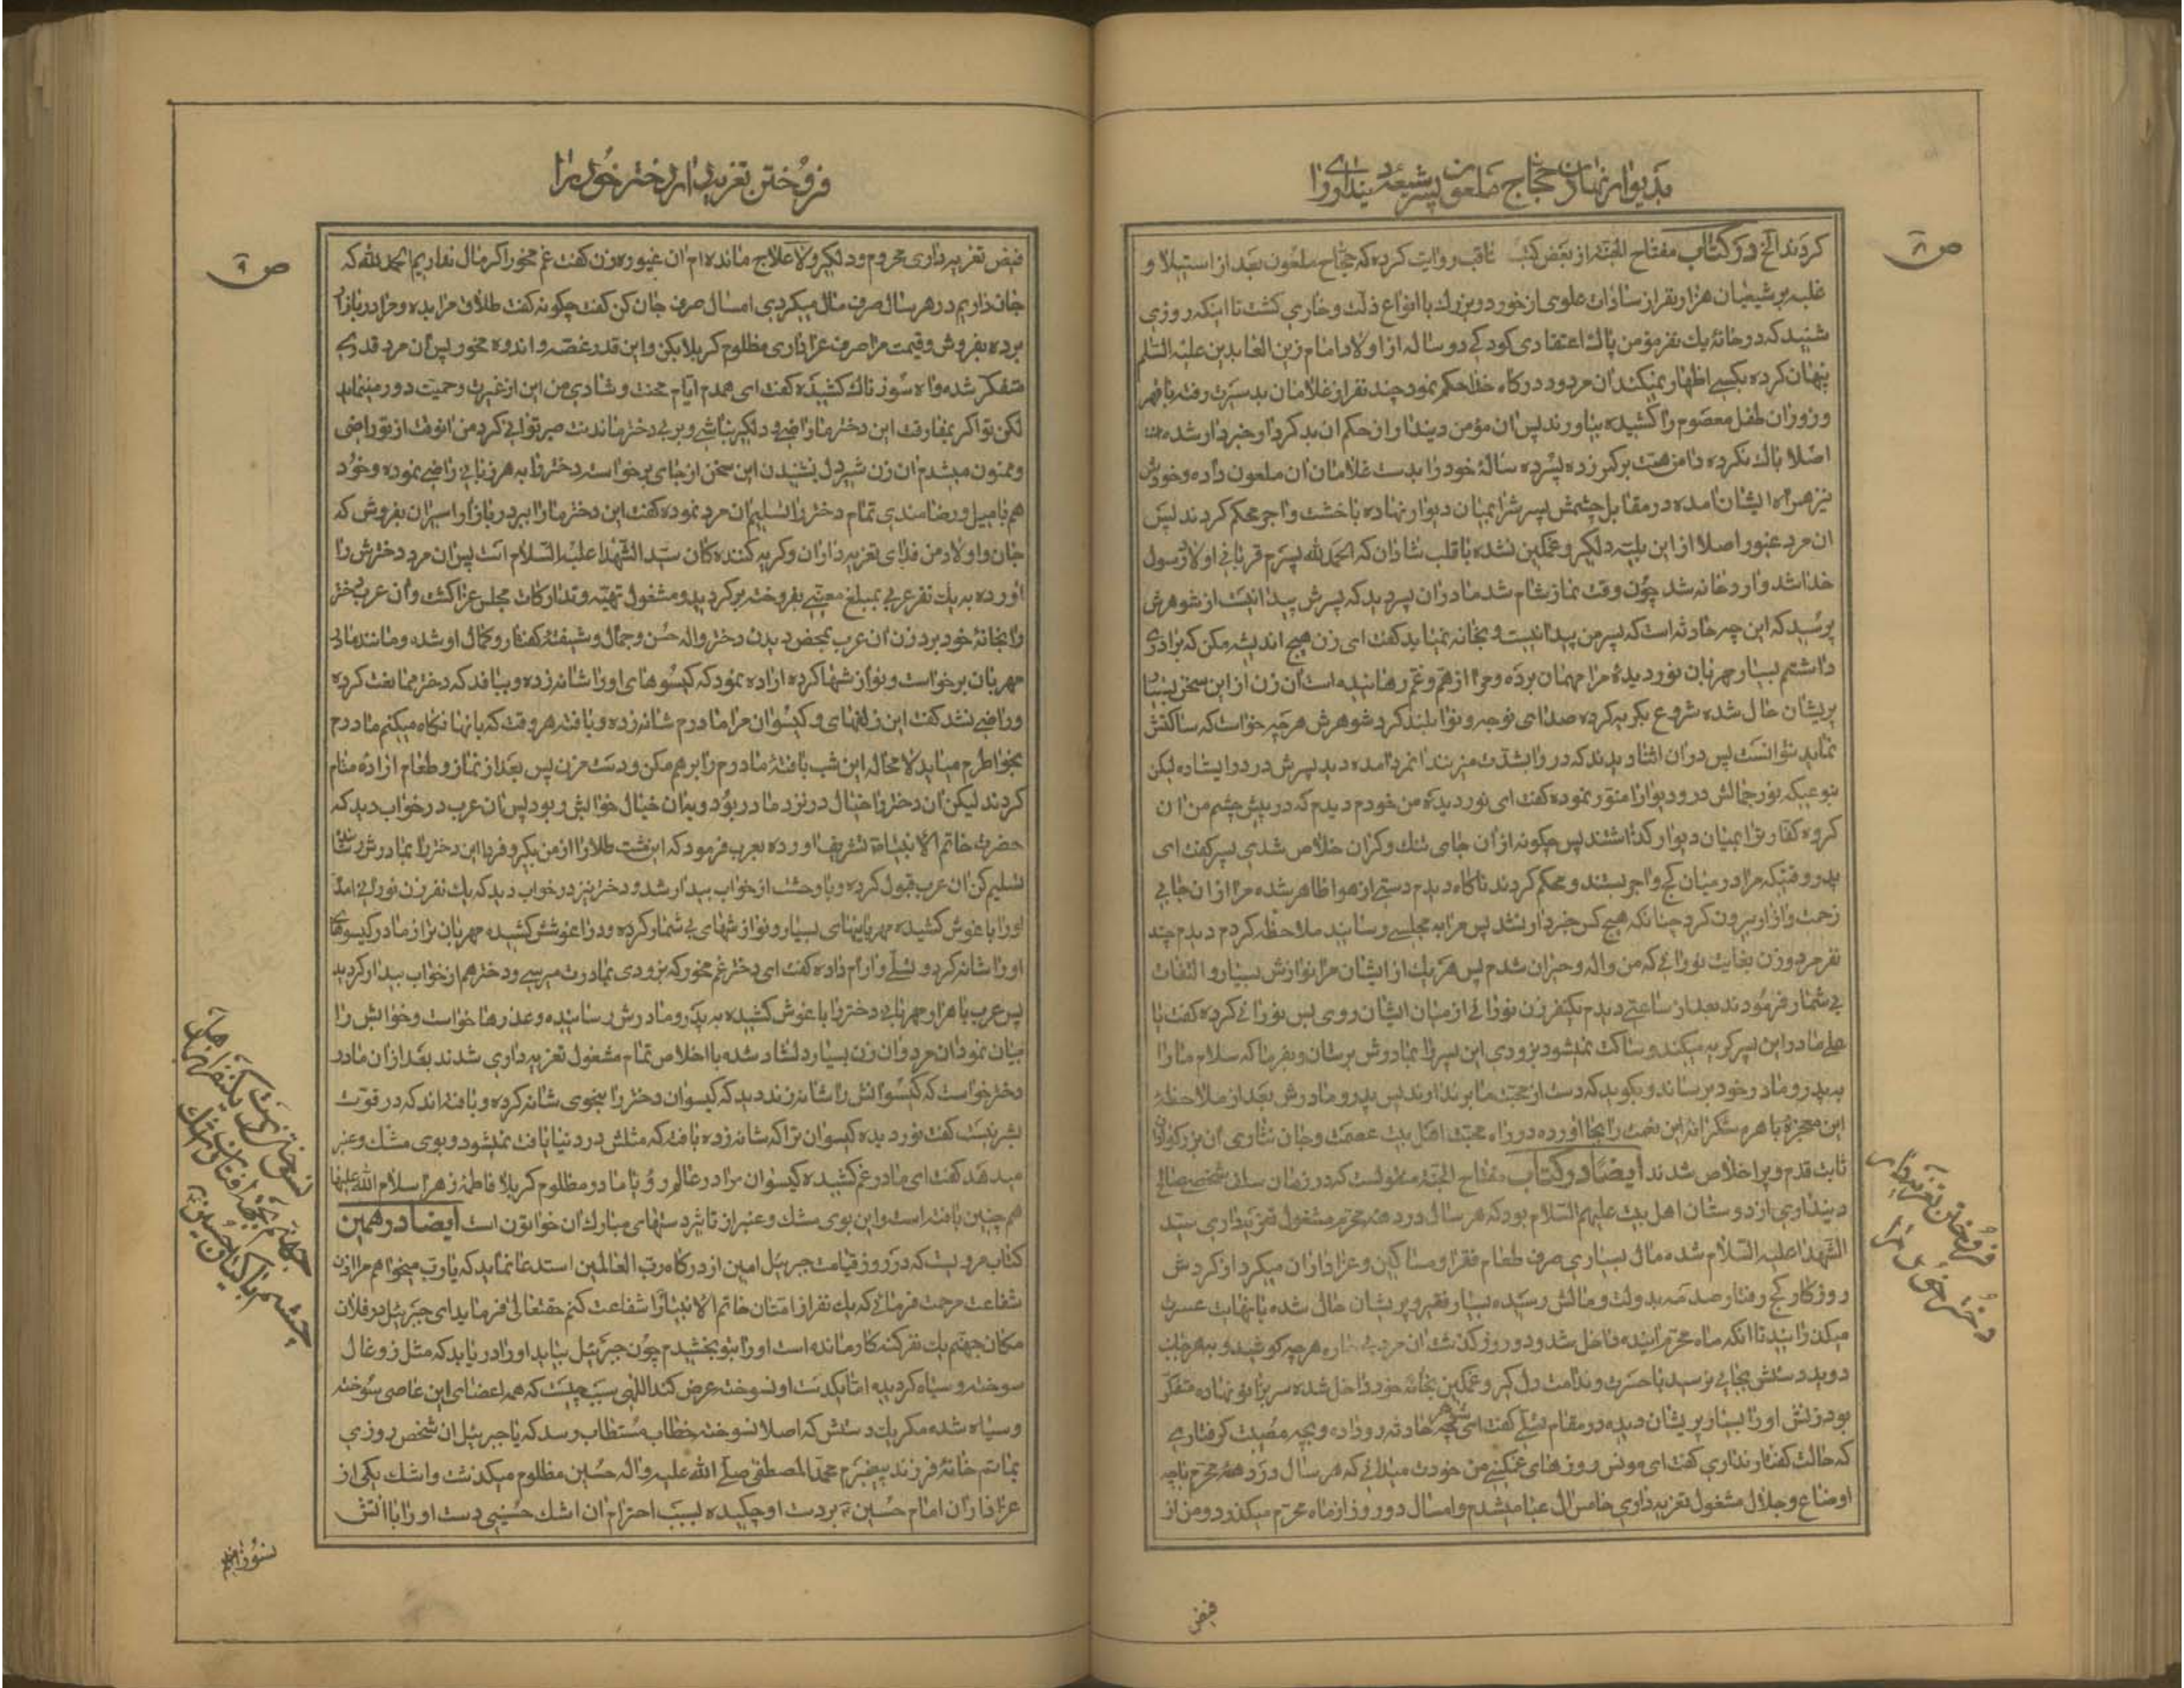 بدیوار نهادن حجاج ملعون پسر شیعهٔ دیندار را
ص ۸
کردند الخ در کتاب مفتاح الجنة از بعض کتب ثاقب روایت کرده که حجاج ملعون بعد از استیلا و
غلبه بر شیعیان هزار نفر از سادات علوی از خورد و بزرك با انواع ذلت و خاری کشت تا اینکه روزی
شنید که در خانهٔ یك نفر مؤمن پاك اعتقادی کودکی دو ساله از اولاد امام زین العابدین علیه السلم
پنهان کرده بکسی اظهار نمیکند ان مردود درکاه خدا حکم نمود چند نفر از غلامان بد سیرت رفته با قهر
و زور ان طفل معصوم را کشیده بیاورند پس ان مؤمن دیندار از حکم ان بد کردار خبردار شده
اصلا باك نکرده دامن همت بر کمر زده پسر ده سالهٔ خود را بدست غلامان ان ملعون داده و خودش
نیز همراه ایشان امده در مقابل چشمش پسرش را بمیان دیوار نهاده با خشت و اجر محکم کردند پس
ان مرد غیور اصلا از این بلیه دلکیر و غمکین نشده با قلب شادان که الحمد لله پسرم قربانی اولاد رسول
خدا شد وارد خانه شد چون وقت نماز شام شد مادر ان پسر دید که پسرش پیدا نیست از شوهرش
پرسید که این چه حادثه است که پسر من پیدا نیست و بخانه نمیاید کفت ای زن هیچ اندیشه مکن که برادری
داشتم بسیار مهربان نور دیدهٔ مرا مهمان برده و مرا از هم و غم رهانیده است ان زن از این سخن بسیار
پریشان حال شده شروع بکریه کرده صدای نوحه و نوا بلند کرد شوهرش هر چه خواست که ساکتش
نماید نتوانست پس در ان اثنا دیدند که در را بشدت میزنند انمرد امده دید پسرش در در ایستاده لیکن
بنوعیکه نور جمالش در و دیوار را منور نموده کفت ای نور دیده من خودم دیدم که در پیش چشم من ان
کروه کفار ترا بمیان دیوار کذاشتند پس چکونه از ان جای تنك و کران خلاص شدی پسر کفت ای
پدر وقتیکه مرا در میان کج و اجر بستند و محکم کردند ناکاه دیدم دستی از هوا ظاهر شده مرا از ان جای
زحمت و ازار بیرون کرد چنانکه هیچ کس خبردار نشد پس مرا به مجلسی رسانید ملاحظه کردم دیدم چند
نفر مرد و زن بغایت نورانی که من واله و حیران شدم پس هر یك از ایشان مرا نوازش بسیار و التفات
بی شمار فرمودند بعد از ساعتی دیدم یکنفر زن نورانی از میان ایشان روی بس نورانی کرده کفت یا
علی مادر این پسر کریه میکند و ساکت نمیشود بزودی این پسر را بمادرش برسان و بفرما که سلام ما را
به پدر و مادر خود برساند و بکوید که دست از محبت ما برندارند پس پدر و مادرش بعد از ملاحظهٔ
این معجزهٔ باهره شکرانه این نعمت را بجا اورده در راه محبت اهل بیت عصمت و جان نثاری ان بزرکواران
ثابت قدم و پر اخلاص شدند ایضا در کتاب مفتاح الجنة منقولست که در زمان سلف شخص صالح
دینداری از دوستان اهل بیت علیهم السلام بود که هر سال در دههٔ محرم مشغول تعزیه داری سید
الشهدا علیه السلام شده مال بسیاری صرف طعام فقرا و مساکین و عزاداران میکرد از کردش
روزکار کج رفتار صدمه بدولت و مالش رسیده بسیار فقیر و پریشان حال شده با نهایت عسرت
میکذرانید تا انکه ماه محرم اینده داخل شد و دو روز کذشت ان مرد بیچاره هر چه کوشید و بهر جانب
دوید دستش بجایی نرسید با حسرت و ندامت دل کیر و غمکین بخانهٔ خود داخل شده سر بزانو نهاده متفکر
بود زنش او را بسیار پریشان دیده در مقام تسلی کفت ای شوهر چه حادثه رو داده و بچه مصیبت کرفتاری
که حالت کفتار نداری کفت ای مونس روزهای غمکینی من خودت میدانی که هر سال در دههٔ محرم با چه
اوضاع و جلال مشغول تعزیه داری خامس ال عبا میشدم و امسال دو روز از ماه محرم میکذرد و من از
فروختن تعزیه دار
دختر خود را
فیض
فروختن تعزیه دار دختر خود را
ص ۹
فیض تعزیه داری محروم و دلکیر و لا علاج مانده ام ان غیوره زن کفت غم مخور اکر مال نداریم الحمد لله که
جان داریم در هر سال صرف مال میکردی امسال صرف جان کن کفت چکونه کفت طلاق مرا بده و مرا در بازار
برده بفروش و قیمت مرا صرف عزاداری مظلوم کربلا بکن و این قدر غصه و اندوه مخور پس ان مرد قدری
متفکر شده و اه سوزناك کشیده کفت ای همدم ایام محنت و شادی من این از غیرت و حمیت دور مینماید
لکن تو اکر بمفارقت این دختر ما راضی و دلکیر نباشی و بر بی دختر ماندنت صبر توانی کرد من انوقت از تو راضی
و ممنون میشدم ان زن شیردل بشنیدن این سخن از جای برخواست دختر را به هر زبانی راضی نموده و خود
هم با میل و رضامندی تمام دختر را تسلیم ان مرد نموده کفت این دختر ما را ببر در بازار اسیران بفروش که
جان و اولاد من فدای تعزیه داران و کریه کننده کان سید الشهدا علیه السلام است پس ان مرد دخترش را
اورده به یك نفر عربی بمبلغ معینی بفروخته برکردید و مشغول تهیه و تدارکات مجلس عزا کشت و ان عرب دختر
را بخانهٔ خود برد زن ان عرب بمحض دیدن دختر واله حسن و جمال و شیفتهٔ کفتار و کمال او شده و مانند مادر
مهربان برخواست و نوازشها کرده اراده نمود که کیسوهای او را شانه زده و ببافد که دختر ممانعت کرده
و راضی نشد کفت این زلفهای و کیسوان مرا مادرم شانه زده و بافته هر وقت که بانها نکاه میکنم مادرم
بخواطرم میاید لا محاله این شب بافتهٔ مادرم را بر هم مکن و دست مزن پس بعد از نماز و طعام ارادهٔ منام
کردند لیکن ان دختر را خیال در نزد مادر بود و بدان خیال خوابش ربود پس ان عرب در خواب دید که
حضرت خاتم الانبیاء تشریف اورده بعرب فرمود که این شت طلا را از من بکیر و فردا این دختر را بمادرش رسان
تسلیم کن ان عرب قبول کرده و با وحشت از خواب بیدار شد و دختر نیز در خواب دید که یك نفر زن نورانی امد
او را باغوش کشیده مهربانیهای بسیار و نوازشهای بی شمار کرده و در اغوشش کشیده مهربان تر از مادر کیسوهای
او را شانه کرد و تسلی و ارام داده کفت ای دختر غم مخور که بزودی بمادرت میرسی و دختر هم از خواب بیدار کردید
پس عرب با هزار مهربانی دختر را باغوش کشیده به پدر و مادرش رسانیده و عذرها خواست و خوابش را
بیان نمود ان مرد و ان زن بسیار دلشاد شده با اخلاص تمام مشغول تعزیه داری شدند بعد از ان مادر
دختر خواست که کیسوانش را شانه زند دید که کیسوان دختر را بنحوی شانه کرده و بافته اند که در قوت
بشر نیست کفت نور دیده کیسوان ترا که شانه زده بافته که مثلش در دنیا یافت نمیشود و بوی مشك و عنبر
میدهد کفت ای مادر غم کشیده کیسوان مرا در عالم رؤیا مادر مظلوم کربلا فاطمهٔ زهرا سلام الله علیها
هم چنین بافته است و این بوی مشك و عنبر از تاثیر دستهای مبارك ان خواتون است ایضا در همین
کتاب مرویست که در روز قیامت جبرئیل امین از درکاه رب العالمین استدعا نماید که یا رب میخواهم مرا اذن
شفاعت مرحمت فرمائی که یك نفر از امتان خاتم الانبیا را شفاعت کنم حقتعالی فرماید ای جبرئیل در فلان
مکان جهنم یك نفر کنه کار مانده است او را بتو بخشیدم چون جبرئیل بیاید او را دریابد که مثل زوغال
سوخته و سیاه کردیده اما یکدست او نسوخته عرض کند اللهی سبب چیست که همه اعضای این عاصی سوخته
و سیاه شده مکر یك دستش که اصلا نسوخته خطاب مستطاب رسد که یا جبرئیل ان شخص روزی
بماتم خانهٔ فرزند پیغمبرم محمد المصطفی صلی الله علیه و اله حسین مظلوم میکذشت و اشك یکی از
عزاداران امام حسین بر دست او چکیده بسبب احترام ان اشك حسینی دست او را با اتش
نسوختن دست یکنفر در میان
جهنم بجهة افتادن اشك
چشم باکیان حسین
نسوزانیم